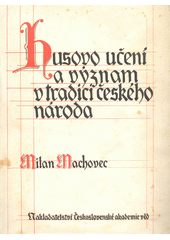 Husovo učení
a význam
v tradici českého
národa
Milan Machovec
Nakladatelství Československé akademie věd